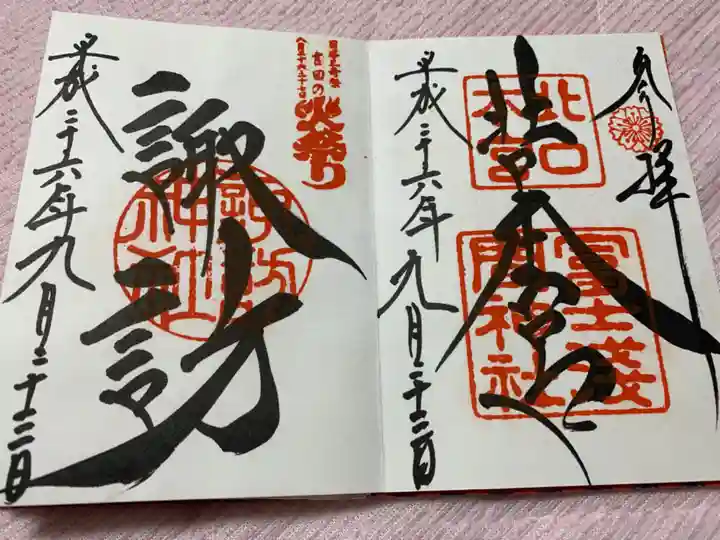 奉拝
北口本宮
北口
本宮
冨士浅
間神社
平成二十六年九月二十二日
日本三奇祭
八月二十六二十七日
吉田の
火祭り
諏訪
諏訪
神社
平成二十六年九月二十二日